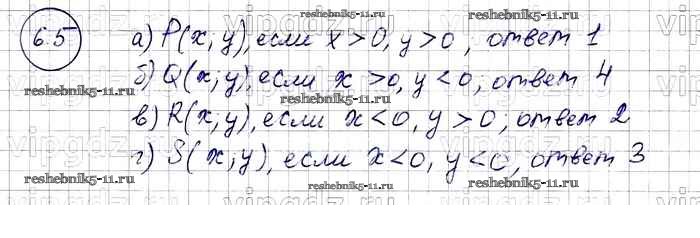 6.5
а) P(x; y), если x > 0, y > 0; ответ 1
reshebnik5-11.ru reshebnik5-11.ru
б) Q(x; y), если x > 0, y < 0; ответ 4
reshebnik5-11.ru reshebnik5-11.ru
в) R(x; y), если x < 0, y > 0; ответ 2
vipgdz.ru vipgdz.ru
г) S(x; y), если x < 0, y < 0, ответ 3
reshebnik5-11.ru reshebnik5-11.ru